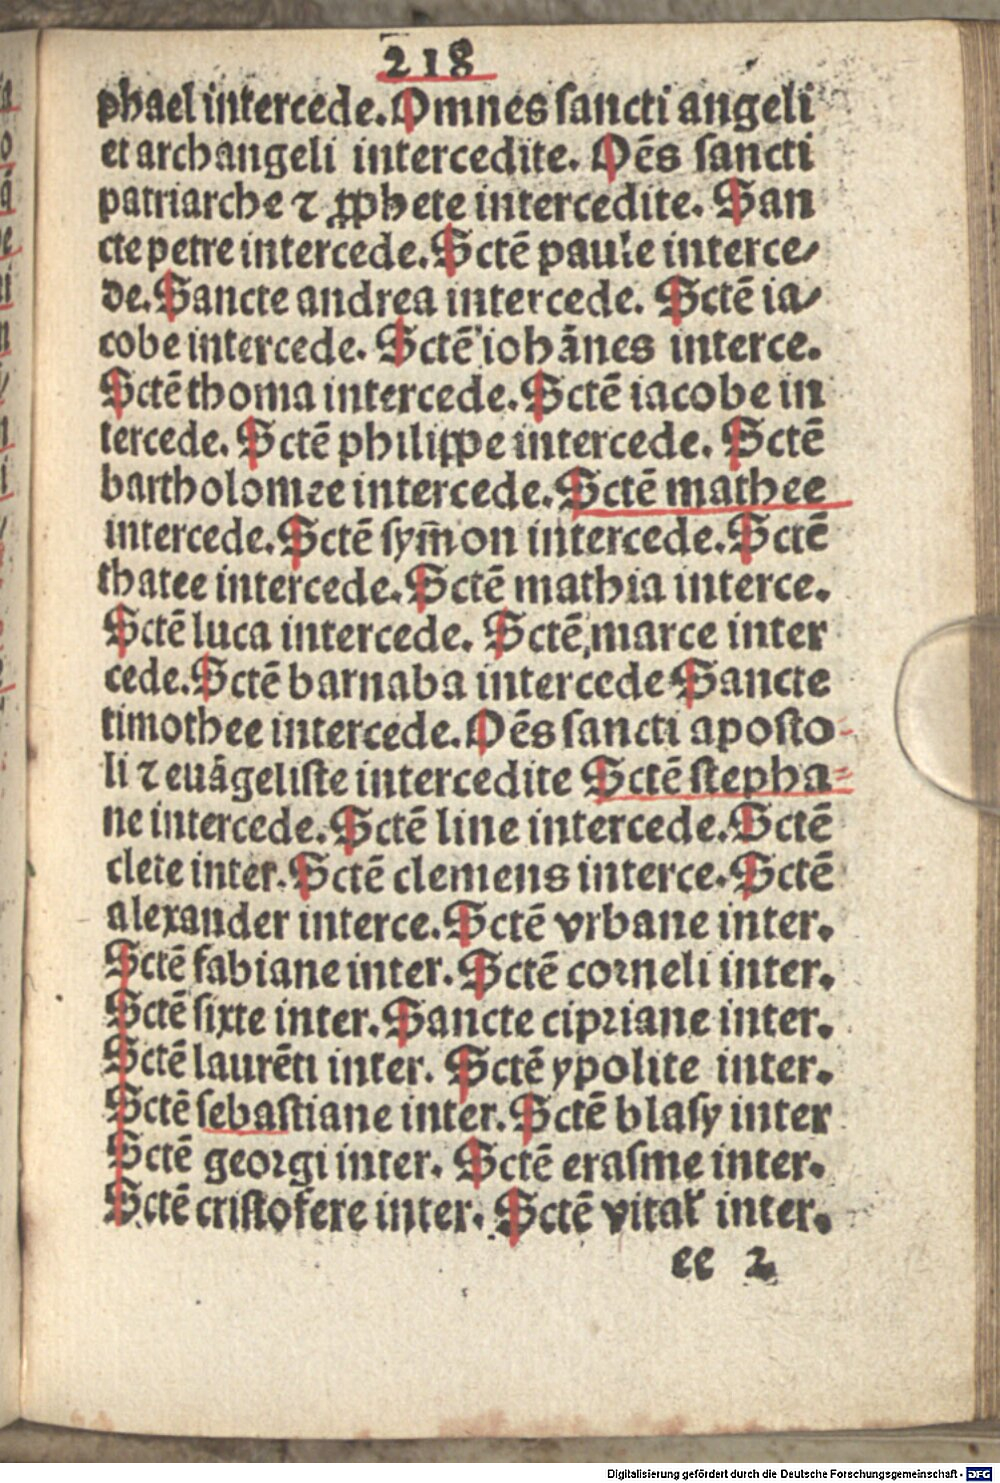 218
phael intercede. Omnes sancti angeli
et archangeli intercedite. Oēs sancti
patriarche ⁊ ꝓphete intercedite. San
cte petre intercede. Sctē paule interce⸗
de. Sancte andrea intercede. Sctē ia⸗
cobe intercede. Sctē iohānes interce.
Sctē thoma intercede. Sctē iacobe in
tercede. Sctē philippe intercede. Sctē
bartholomee intercede. Sctē mathee
intercede. Sctē sym̄on intercede. Sctē
thatee intercede. Sctē mathia interce.
Sctē luca intercede. Sctē marce inter
cede. Sctē barnaba intercede Sancte
timothee intercede. Oēs sancti aposto
li ⁊ euāgeliste intercedite Sctē stepha
ne intercede. Sctē line intercede. Sctē
clete inter. Sctē clemens interce. Sctē
alexander interce. Sctē vrbane inter.
Sctē fabiane inter. Sctē corneli inter.
Sctē sixte inter. Sancte cipriane inter.
Sctē laurēti inter. Sctē ypolite inter.
Sctē sebastiane inter. Sctē blasy inter
Sctē georgi inter. Sctē erasme inter.
Sctē cristofere inter. Sctē vitaƚ inter.
ee 2
Digitalisierung gefördert durch die Deutsche Forschungsgemeinschaft - DFG